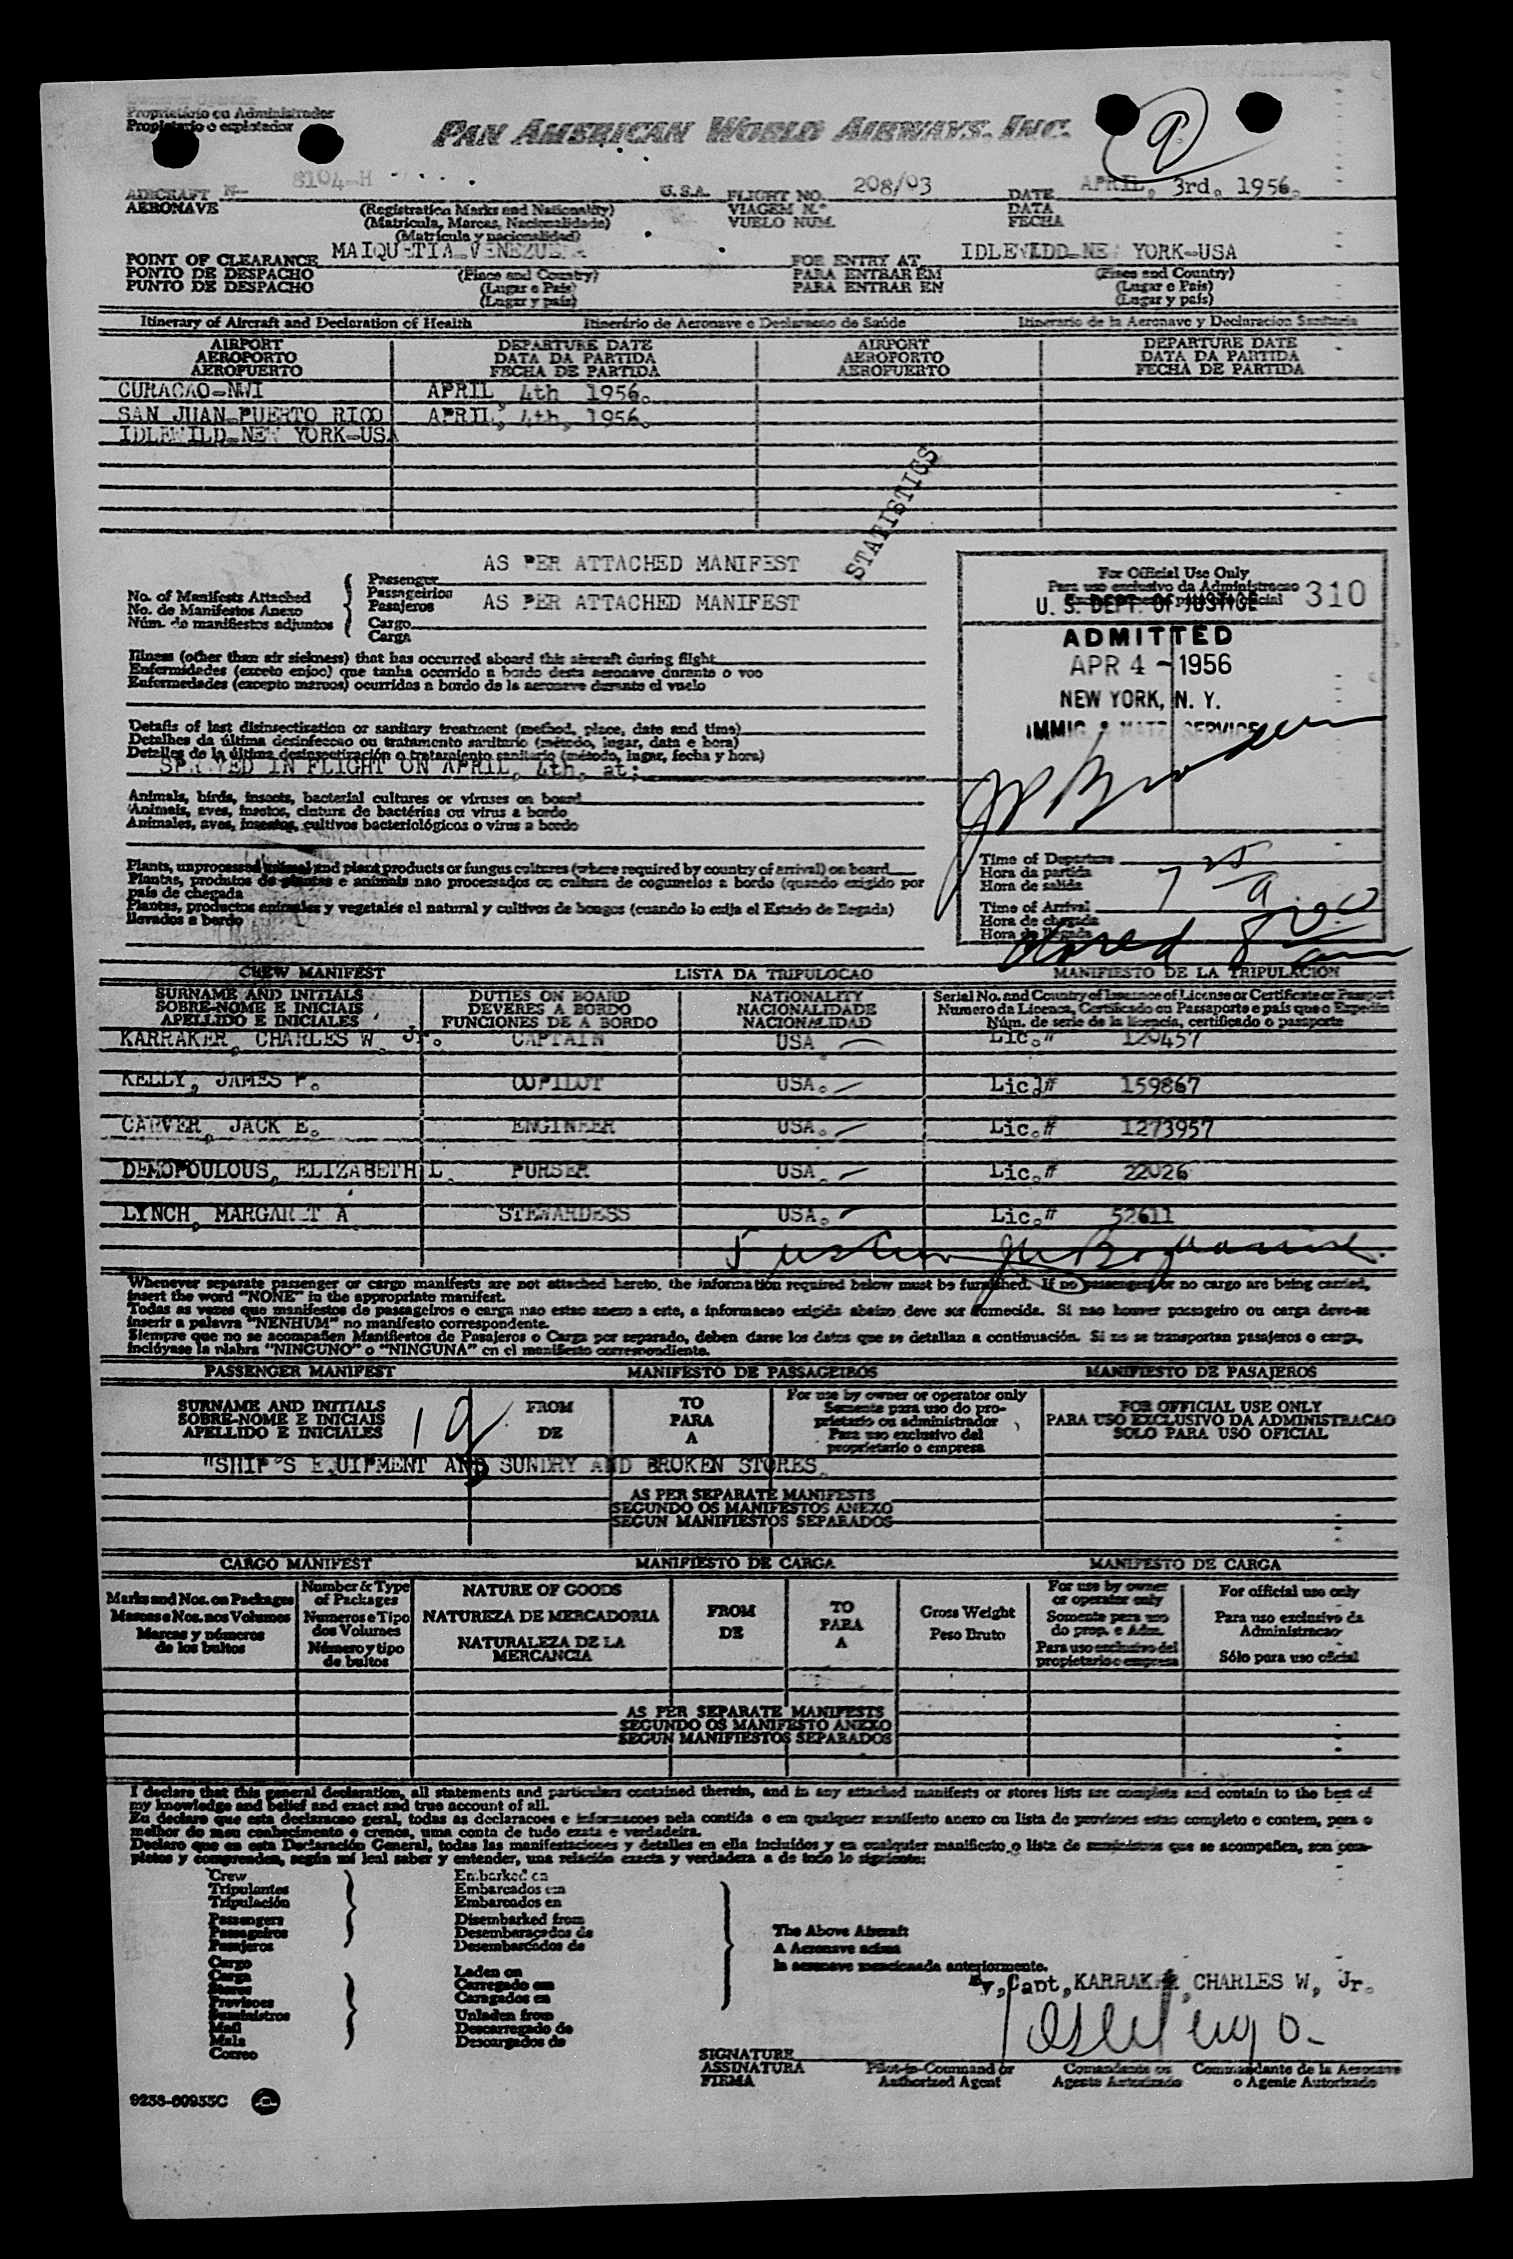 Proprietário ou Administrador
Propietario o explotador
PAN AMERICAN WORLD AIRWAYS, INC.
9
AIRCRAFT N- 8104-H U.S.A. FLIGHT NO. 208/03 DATE APRIL, 3rd. 1956.
AERONAVE (Registration Marks and Nationality) VIAGEM N.º DATA
(Matricula, Marcas, Nacionalidade) VUELO NUM. FECHA
(Matrícula y nacionalidad)
POINT OF CLEARANCE MAIQUETIA-VENEZUELA FOR ENTRY AT IDLEWILD-NEW YORK-USA
PONTO DE DESPACHO (Place and Country) PARA ENTRAR EM (Place and Country)
PUNTO DE DESPACHO (Lugar e País) PARA ENTRAR EN (Lugar e País)
(Lugar y país) (Lugar y país)
Itinerary of Aircraft and Declaration of Health Itinerário de Aeronave e Declaracao de Saúde Itinerario de la Aeronave y Declaracion Sanitaria
AIRPORT DEPARTURE DATE AIRPORT DEPARTURE DATE
AEROPORTO DATA DA PARTIDA AEROPORTO DATA DA PARTIDA
AEROPUERTO FECHA DE PARTIDA AEROPUERTO FECHA DE PARTIDA
CURACAO-NWI APRIL, 4th 1956.
SAN JUAN-PUERTO RICO APRIL, 4th, 1956.
IDLEWILD-NEW YORK-USA
STATISTICS
AS PER ATTACHED MANIFEST
Passenger
No. of Manifests Attached Passageirios
No. de Manifestos Anexo Pasajeros AS PER ATTACHED MANIFEST
Núm. de manifiestos adjuntos Cargo
Carga
For Official Use Only
Para uso exclusivo da Administracao 310
U. S. DEPT. OF JUSTICE
ADMITTED
APR 4 - 1956
NEW YORK, N. Y.
IMMIG. & NATZ. SERVICE
Illness (other than air sickness) that has occurred aboard this aircraft during flight
Enfermidades (exceto enjoo) que tanha ocorrido a bordo desta aeronave durante o voo
Enfermedades (excepto mareos) ocurridos a bordo de la aeronave durante el vuelo
Details of last disinsectization or sanitary treatment (method, place, date and time)
Detalhes da última desinfeccao ou tratamento sanitario (método, lugar, data e hora)
Detalles de la última desinsectización o tratamiento sanitario (método, lugar, fecha y hora)
SPRAYED IN FLIGHT ON APRIL, 4th, at:
Animals, birds, insects, bacterial cultures or viruses on board
Animais, aves, insetos, clutura de bactérias ou virus a bordo
Animales, aves, insectos, cultivos bacteriológicos o virus a bordo
Plants, unprocessed animal and plant products or fungus cultures (where required by country of arrival) on board
Plantas, produtos de plantas e animais nao processados ou cultura de cogumelos a bordo (quando exigido por
país de chegada
Plantas, productos animales y vegetales al natural y cultivos de hongos (cuando lo exija el Estado de llegada)
llevados a bordo
Time of Departure
Hora da partida
Hora de salida 7 25 a
Time of Arrival
Hora de chegada
Hora de llegada
8 00 am
CREW MANIFEST LISTA DA TRIPULOCAO MANIFIESTO DE LA TRIPULACION
SURNAME AND INITIALS DUTIES ON BOARD NATIONALITY Serial No. and Country of Issuance of License or Certificate or Passport
SOBRE-NOME E INICIAIS DEVERES A BORDO NACIONALIDADE Numero da Licenca, Certificado ou Passaporte e pais que o Expediu
APELLIDO E INICIALES FUNCIONES DE A BORDO NACIONALIDAD Núm. de serie de la licencia, certificado o pasaporte
KARRAKER, CHARLES W. Jr. CAPTAIN USA Lic.# 120457
KELLY, JAMES P. COPILOT USA. Lic.# 159867
CARVER, JACK E. ENGINEER USA. Lic.# 1273957
DEMOPOULOUS, ELIZABETH L. PURSER USA. Lic.# 22026
LYNCH, MARGARET A. STEWARDESS USA. Lic.# 52611
Whenever separate passenger or cargo manifests are not attached hereto, the information required below must be furnished. If no passengers or no cargo are being carried,
insert the word "NONE" in the appropriate manifest.
Todas as vezes que manifestos de passageiros e carga nao estao anexo a este, a informacao exigida abaixo deve ser fornecida. Si nao houver passageiro ou carga deve-se
inserir a palavra "NENHUM" no manifesto correspondente.
Siempre que no se acompañen Manifiestos de Pasajeros o Carga por separado, deben darse los datos que se detallan a continuación. Si no se transportan pasajeros o carga,
inclúyase la plabra "NINGUNO" o "NINGUNA" en el manifiesto correspondiente.
PASSENGER MANIFEST MANIFESTO DE PASSAGEIROS MANIFIESTO DE PASAJEROS
SURNAME AND INITIALS FROM TO For use by owner or operator only FOR OFFICIAL USE ONLY
SOBRE-NOME E INICIAIS DE PARA Somente para uso do pro- PARA USO EXCLUSIVO DA ADMINISTRACAO
APELLIDO E INICIALES A prietario ou administrador SOLO PARA USO OFICIAL
19 Para uso exclusivo del
proprietario o empresa
"SHIP'S EQUIPMENT AND SUNDRY AND BROKEN STORES.
AS PER SEPARATE MANIFESTS
SEGUNDO OS MANIFESTOS ANEXO
SEGUN MANIFIESTOS SEPARADOS
CARGO MANIFEST MANIFIESTO DE CARGA MANIFESTO DE CARGA
Marks and Nos. on Packages Number & Type of Packages NATURE OF GOODS FROM TO Gross Weight For use by owner or operator only For official use only
Marcas e Nos. nos Volumes Numeros e Tipo dos Volumes NATUREZA DE MERCADORIA DE PARA Peso Bruto Somente pera uso do prop. e Adm. Para uso exclusivo da Administracao
Marcas y números de los bultos Número y tipo de bultos NATURALEZA DE LA MERCANCIA A Para uso exclusivo del propietario o empresa Sólo para uso oficial
AS PER SEPARATE MANIFESTS
SEGUNDO OS MANIFESTO ANEXO
SEGUN MANIFIESTOS SEPARADOS
I declare that this general declaration, all statements and particulars contained therein, and in any attached manifests or stores lists are complete and contain to the best of
my knowledge and belief and exact and true account of all.
Eu declaro que esta declaracao geral, todas as declaracoes e informacoes nela contida e em qualquer manifesto anexo ou lista de provisoes estao completo e contem, para o
melhor do meu conhecimento e crenca, uma conta de tudo exata e verdadeira.
Declaro que en esta Declaración General, todas las manifestaciones y detalles en ella incluídos y en cualquier manifiesto o lista de suministros que se acompañen, son com-
pletos y comprenden, según mi leal saber y entender, una relación exacta y verdadera a de todo lo siguiente:
Crew Embarked on
Tripulantes Embarcados em
Tripulación Embarcados en
Passengers Disembarked from
Passageiros Desembaraçados de
Pasajeros Desembarcados de
The Above Aircraft
A Aeronave acima
la aeronave mencionada anteriormente.
Cargo Laden on
Carga Carregado em
Stores Caragados en
Provisoes
Suministros Unladen from
Mail Descarregado de
Mala Descargados de
Correo
By, Capt, KARRAKER, CHARLES W, Jr.
SIGNATURE
ASSINATURA Pilot-in-Command or Comandante ou Commandante de la Aeronave
FIRMA Authorized Agent Agente Autorizado o Agente Autorizado
9238-60935C